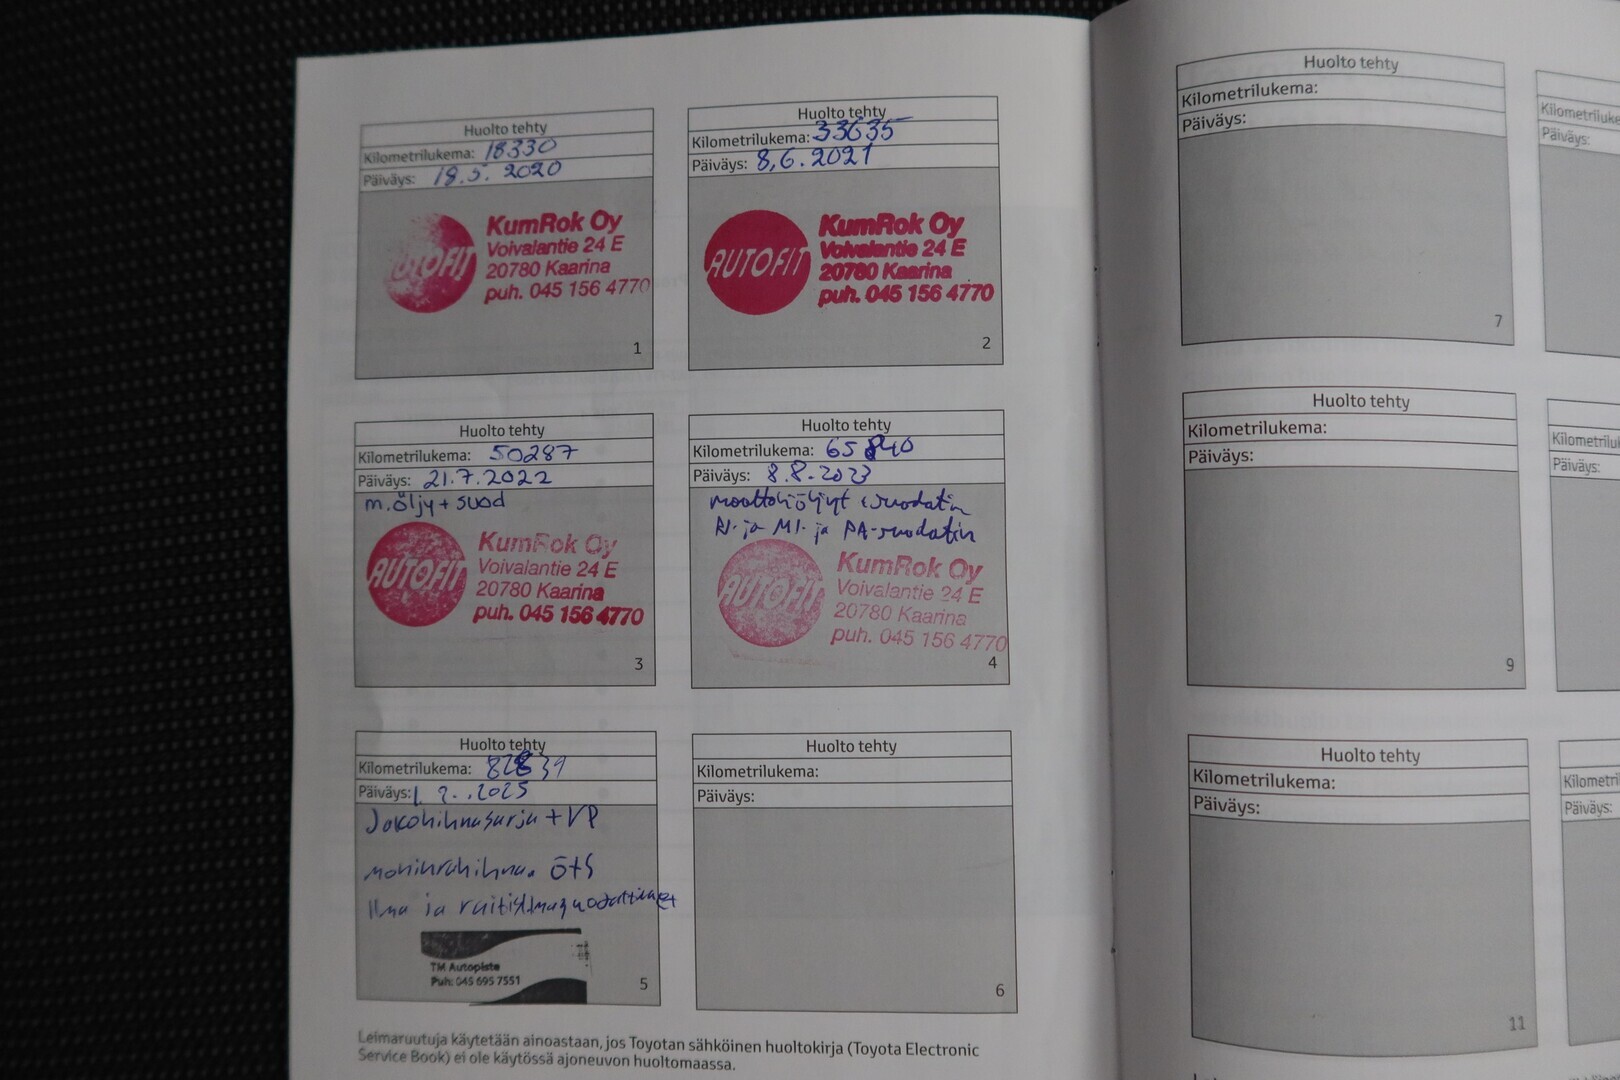 Huolto tehty
Kilometrilukema: 18330
Päiväys: 18.5. 2020
AUTOFIT
KumRok Oy
Voivalantie 24 E
20780 Kaarina
puh. 045 156 4770
1
Huolto tehty
Kilometrilukema: 33635
Päiväys: 8,6.2021
AUTOFIT
KumRok Oy
Voivalantie 24 E
20780 Kaarina
puh. 045 156 4770
2
Huolto tehty
Kilometrilukema: 50287
Päiväys: 21.7.2022
m.öljy + suod
AUTOFIT
KumRok Oy
Voivalantie 24 E
20780 Kaarina
puh. 045 156 4770
3
Huolto tehty
Kilometrilukema: 65840
Päiväys: 8.8.2023
moottoriöljyt + suodatin
RI- ja MI- ja PA-suodatin
AUTOFIT
KumRok Oy
Voivalantie 24 E
20780 Kaarina
puh. 045 156 4770
4
Huolto tehty
Kilometrilukema: 82839
Päiväys: 1.2..2025
Jakohihnasarja + VP
moniurahihna. ö+S
Ilma ja raitisilmasuodattimet
TM Autopiste
Puh: 045 695 7551
5
Huolto tehty
Kilometrilukema:
Päiväys:
6
Leimaruutuja käytetään ainoastaan, jos Toyotan sähköinen huoltokirja (Toyota Electronic
Service Book) ei ole käytössä ajoneuvon huoltomaassa.
Huolto tehty
Kilometrilukema:
Päiväys:
7
Kilometriluke
Päiväys:
Huolto tehty
Kilometrilukema:
Päiväys:
9
Kilometriluk
Päiväys:
Huolto tehty
Kilometrilukema:
Päiväys:
11
Kilometri
Päiväys: